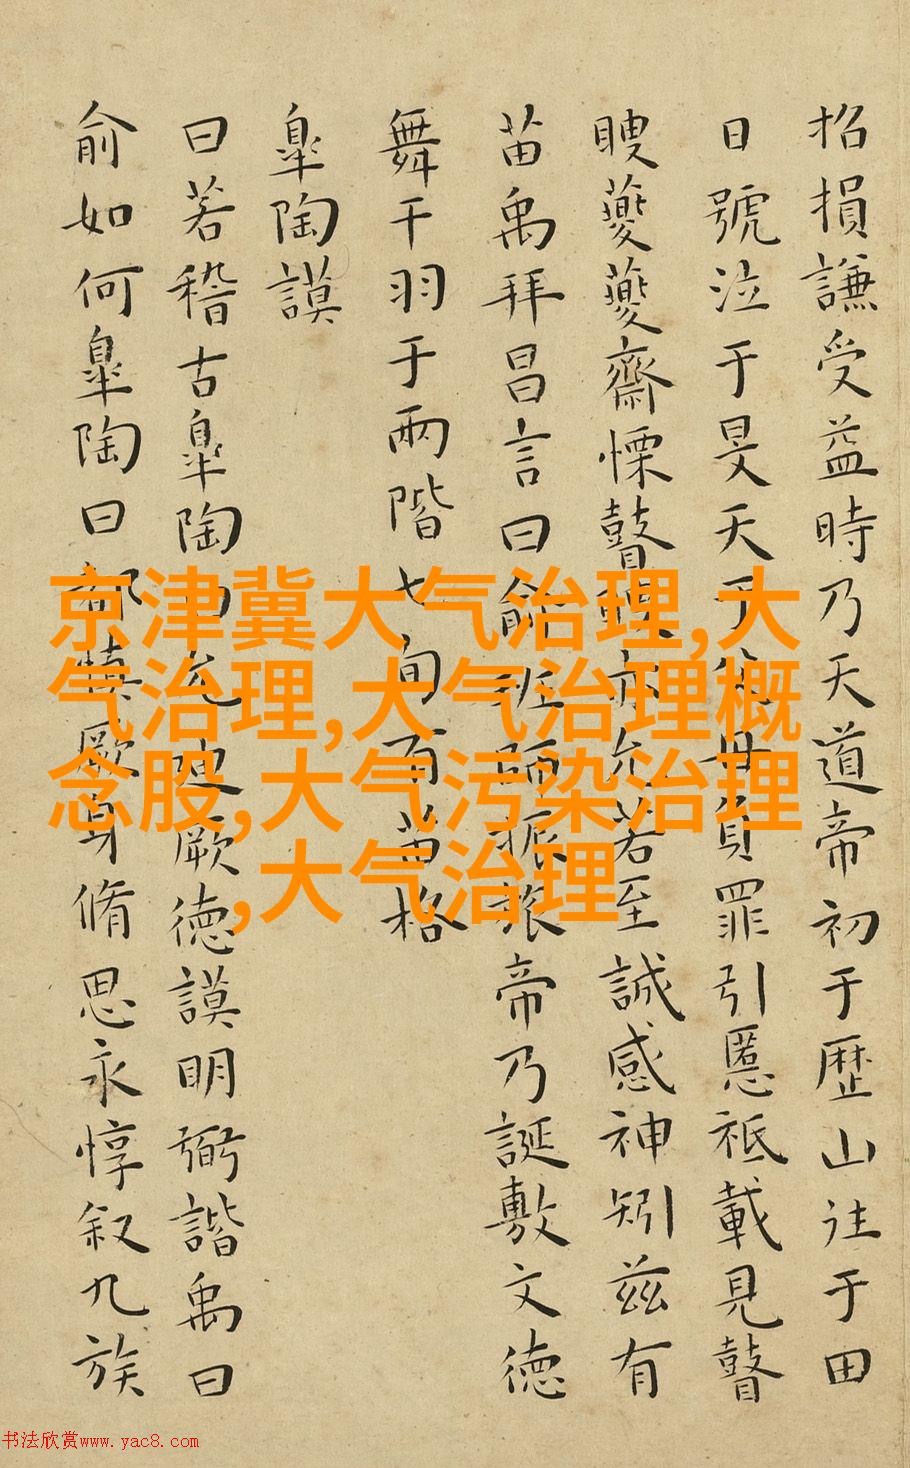 招損謙受益時乃天道帝初于歷山往于田
日號泣于旻天于父母負罪引慝祗載見瞽
瞍夔夔齋慄瞽瞍亦允若至誠感神矧茲有
苗禹拜昌言曰俞班師振旅帝乃誕敷文德
舞干羽于兩階七旬有苗格
臯陶謨
曰若稽古臯陶曰允迪厥德謨明弼諧禹曰
俞如何臯陶曰都慎厥身脩思永惇叙九族
京津冀大气治理,大
气治理,大气治理概
念股,大气污染治理
,大气治理
书法欣赏www.yac8.com